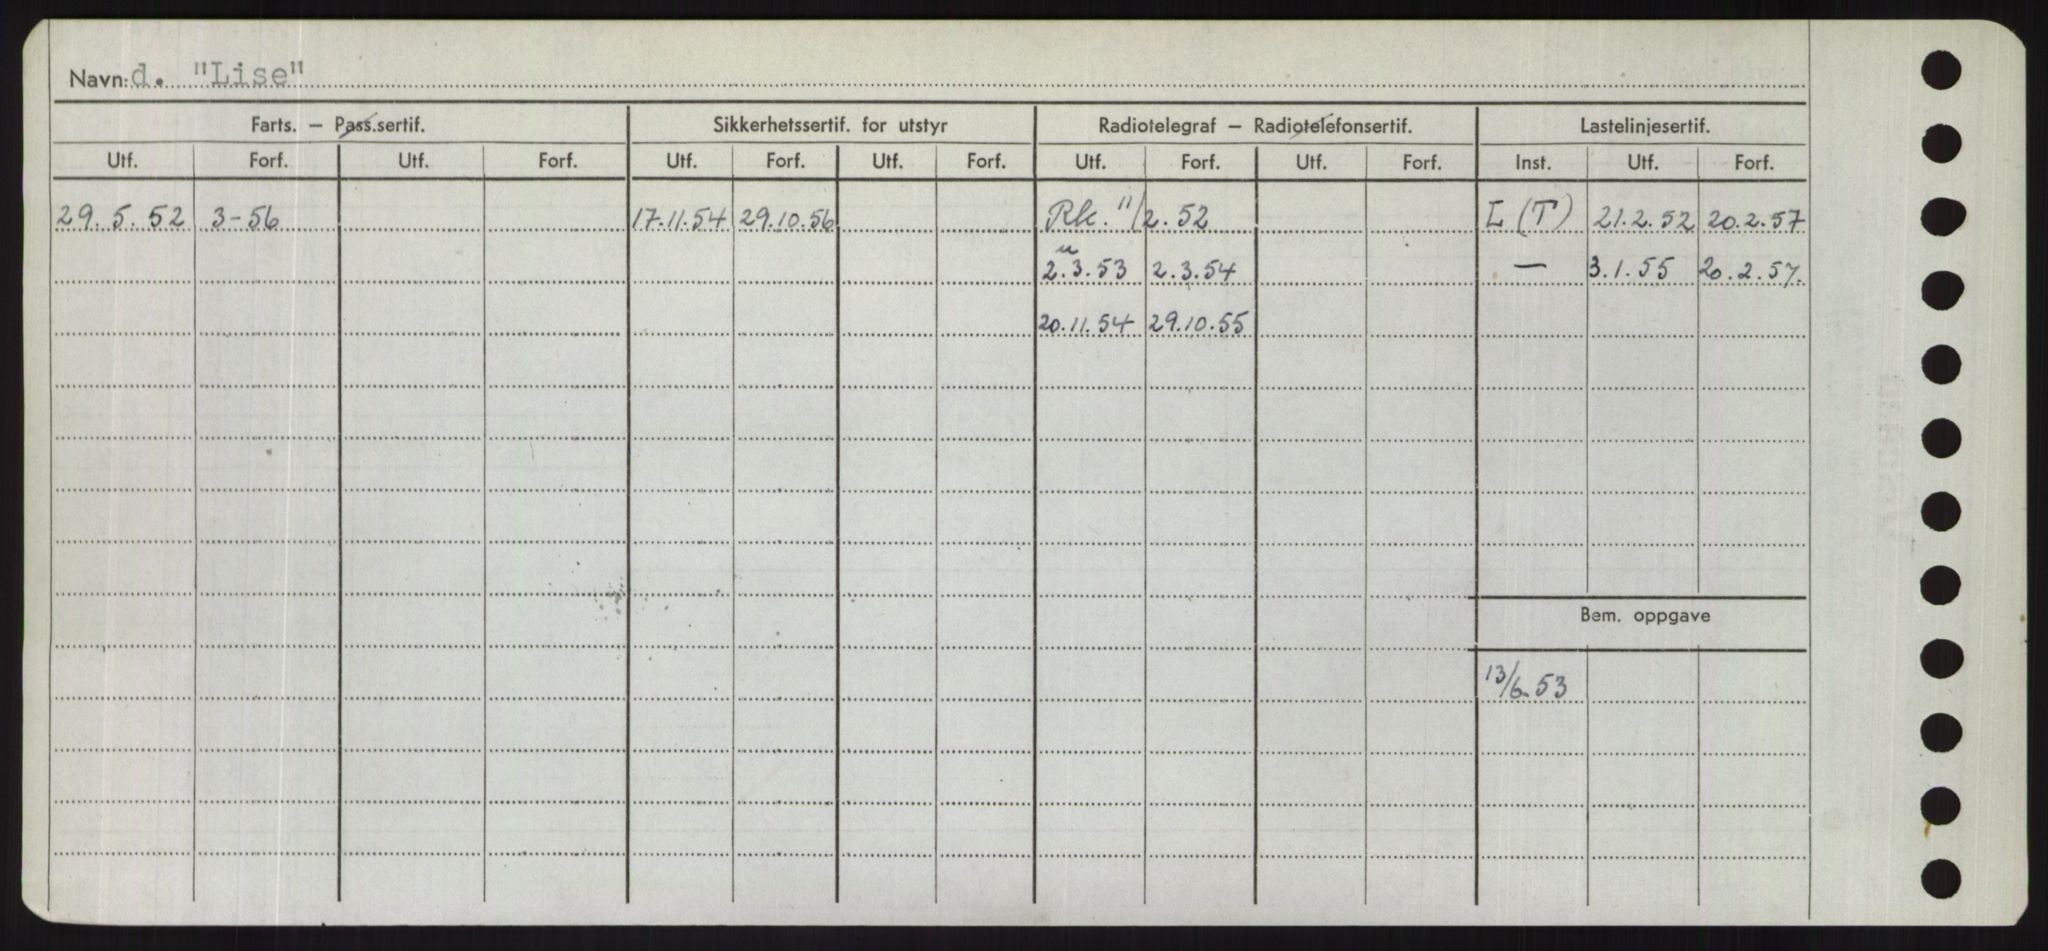 Navn: d. "Lise"
Farts. — Pass.sertif. Sikkerhetssertif. for utstyr Radiotelegraf — Radiotelefonsertif. Lastelinjesertif.
Utf. Forf. Utf. Forf. Utf. Forf. Utf. Forf. Utf. Forf. Utf. Forf. Inst. Utf. Forf.
29.5.52 3-56 17.11.54 29.10.56 Rk. 11/2.52 L (T) 21.2.52 20.2.57
u
2.3.53 2.3.54 — 3.1.55 20.2.57.
20.11.54 29.10.55
Bem. oppgave
13/6.53